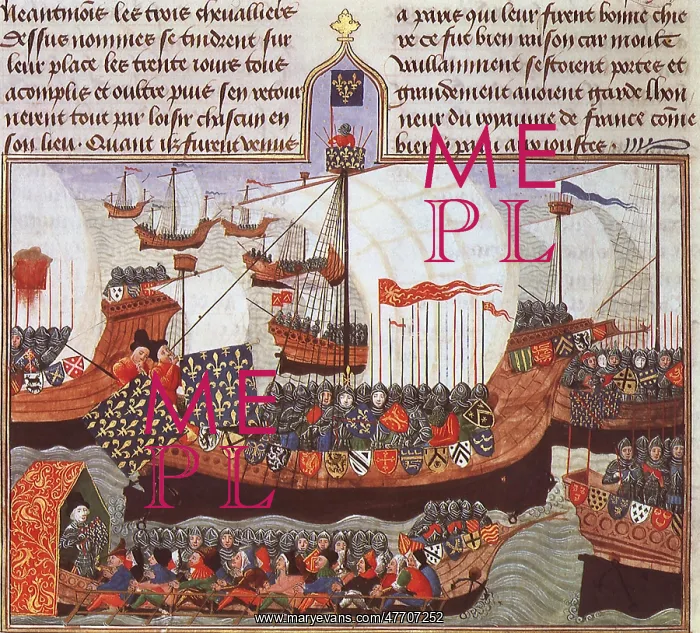 Neantmois les trois chevalliers
dessus nommes se tindrent sur
leur place les trente iours tous
acomplis et oultre puis sen retour
nerent tout par loisir chascun en
son lieu. Quant ilz furent venus
a paris qui leur firent bonne chie
re ce fut bien raison car moult
vaillamment sestoient portes et
grandement auoient garde lhon
neur du royaume de france come
ME
PL
ME
PL
www.maryevans.com/47707252